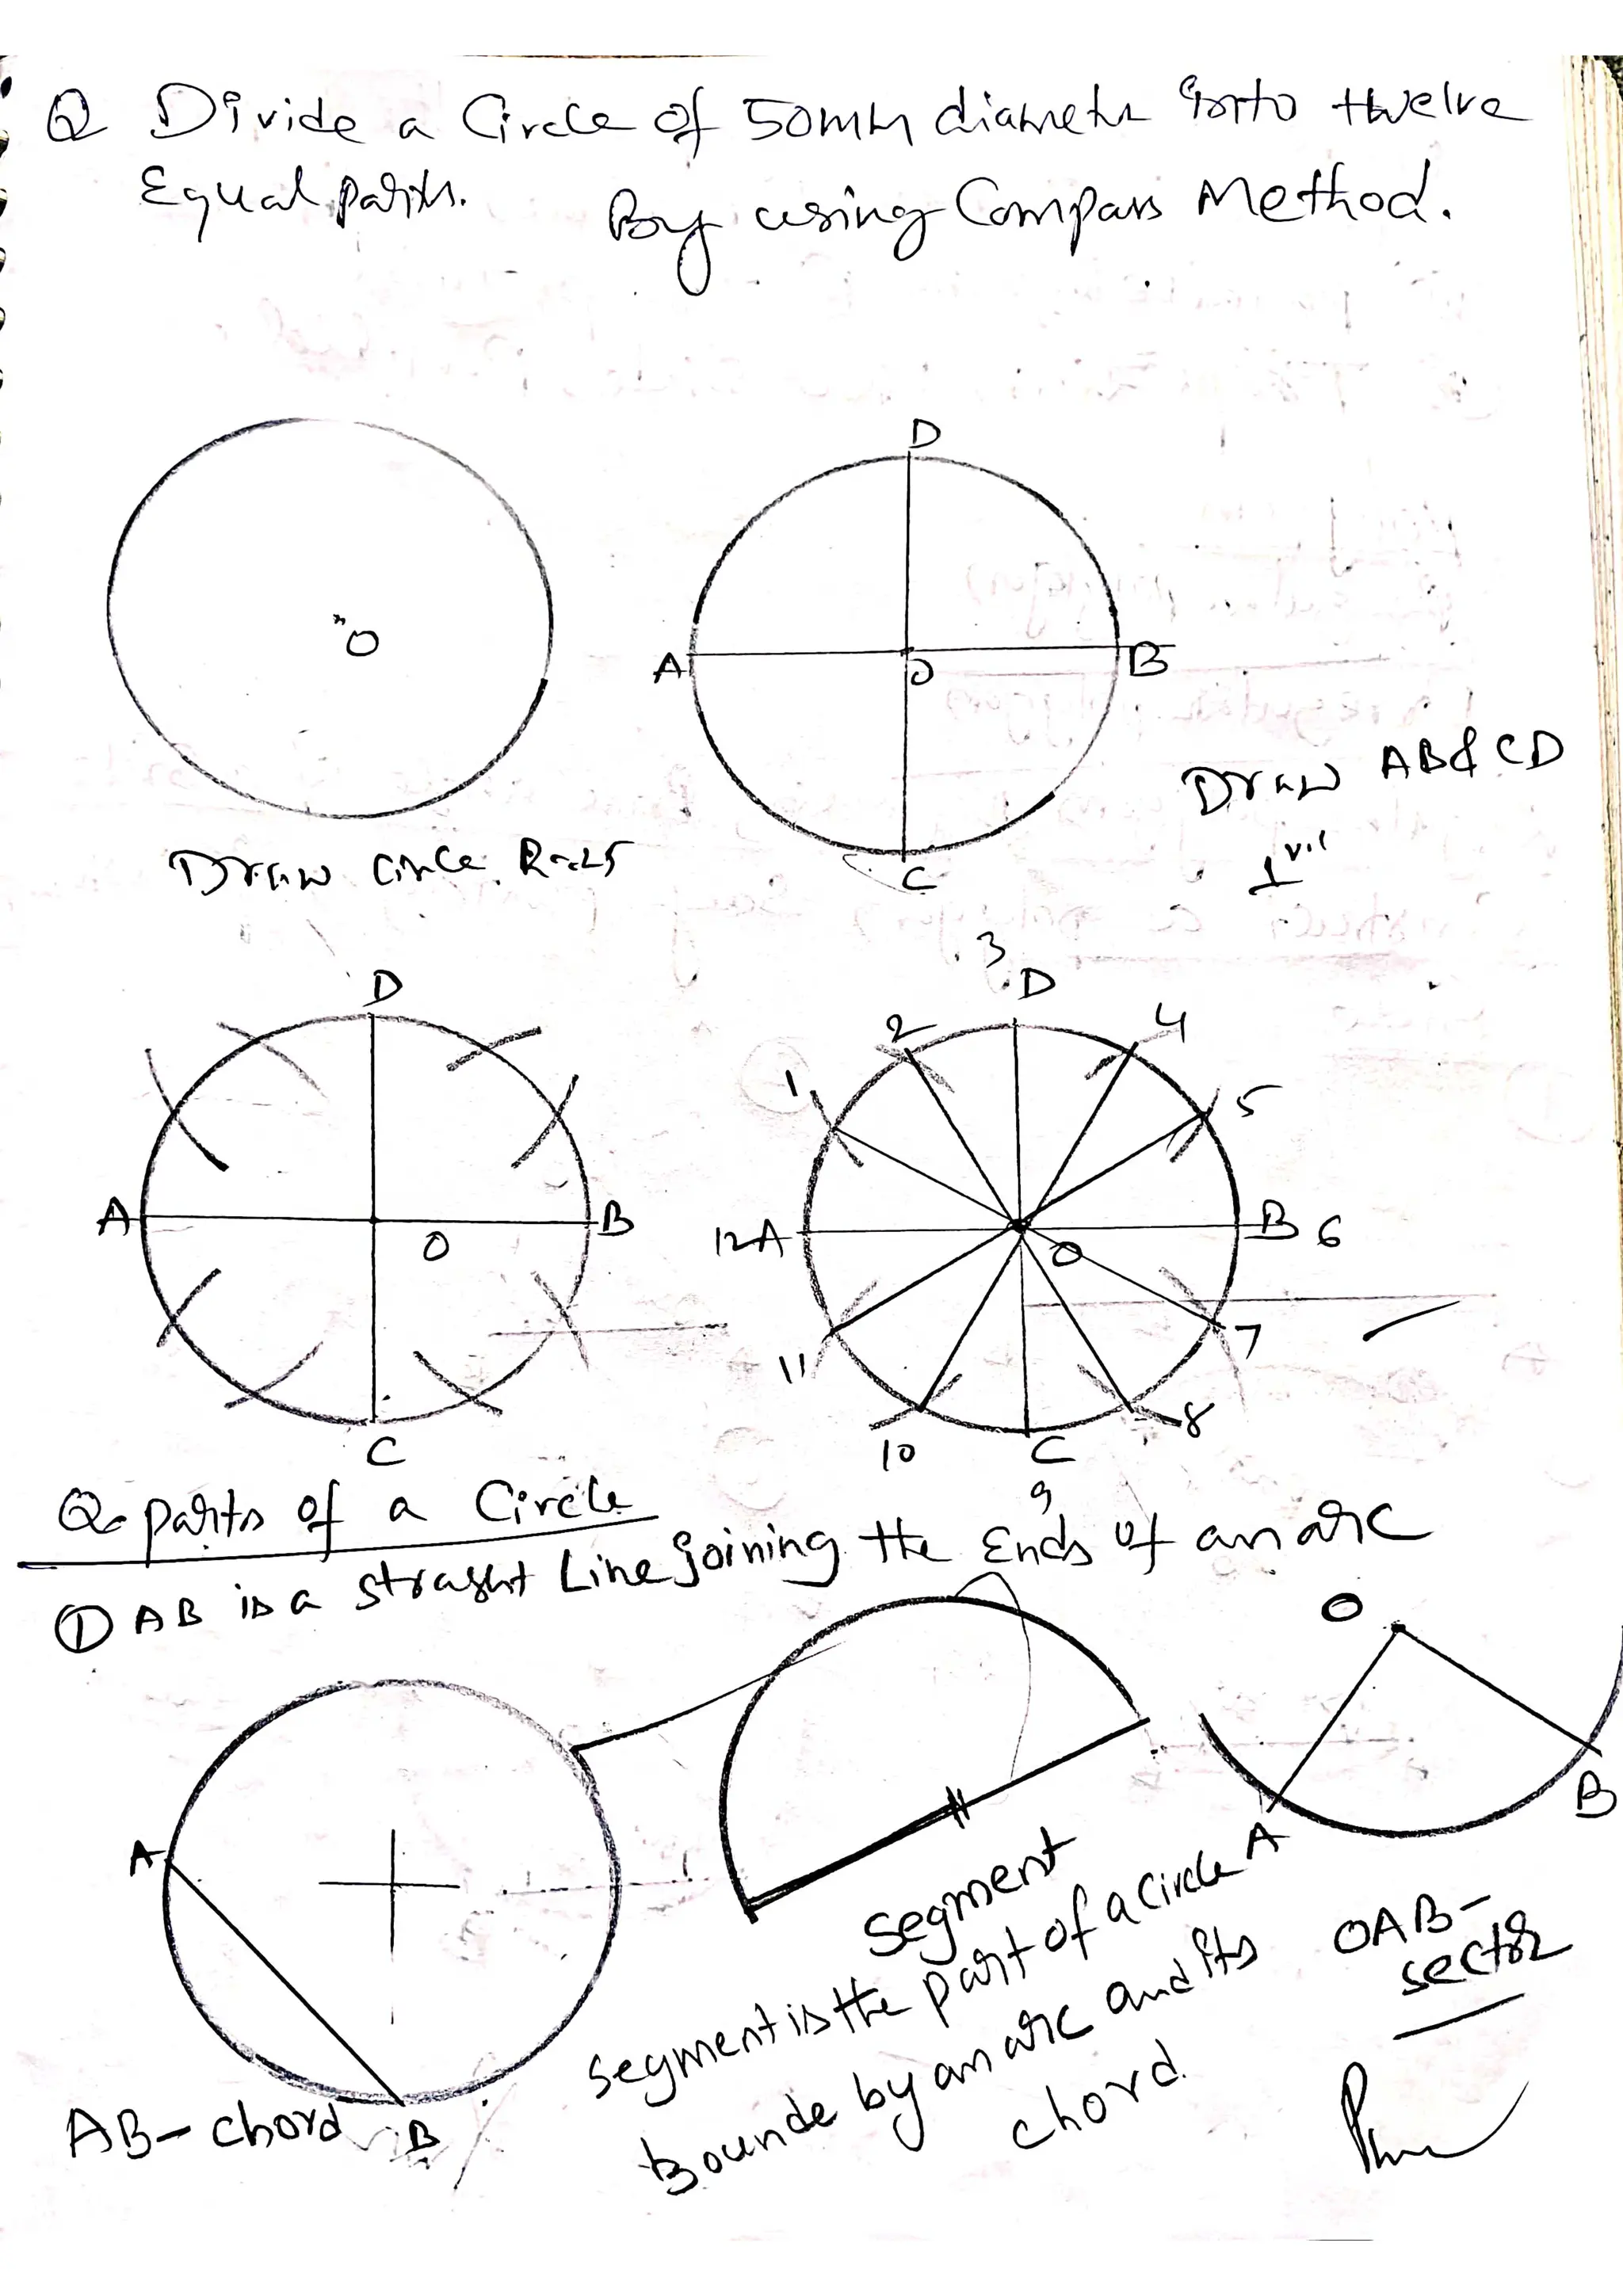 Q Divide a Circle of 50mm diameter into twelve
Equal parts. By using Compass Method.
O
Draw circle R=25
D
A
O
B
C
Draw AB & CD
D
A
O
B
C
3
D
2
4
1
5
12 A
O
B 6
11
7
10
C
8
9
Q- parts of a Circle
① AB is a straght Line joining the Ends of an arc
A
B
AB- chord
Segment
Segment is the part of a Circle
Bounde by an arc and its
chord
O
A
B
OAB-
sector